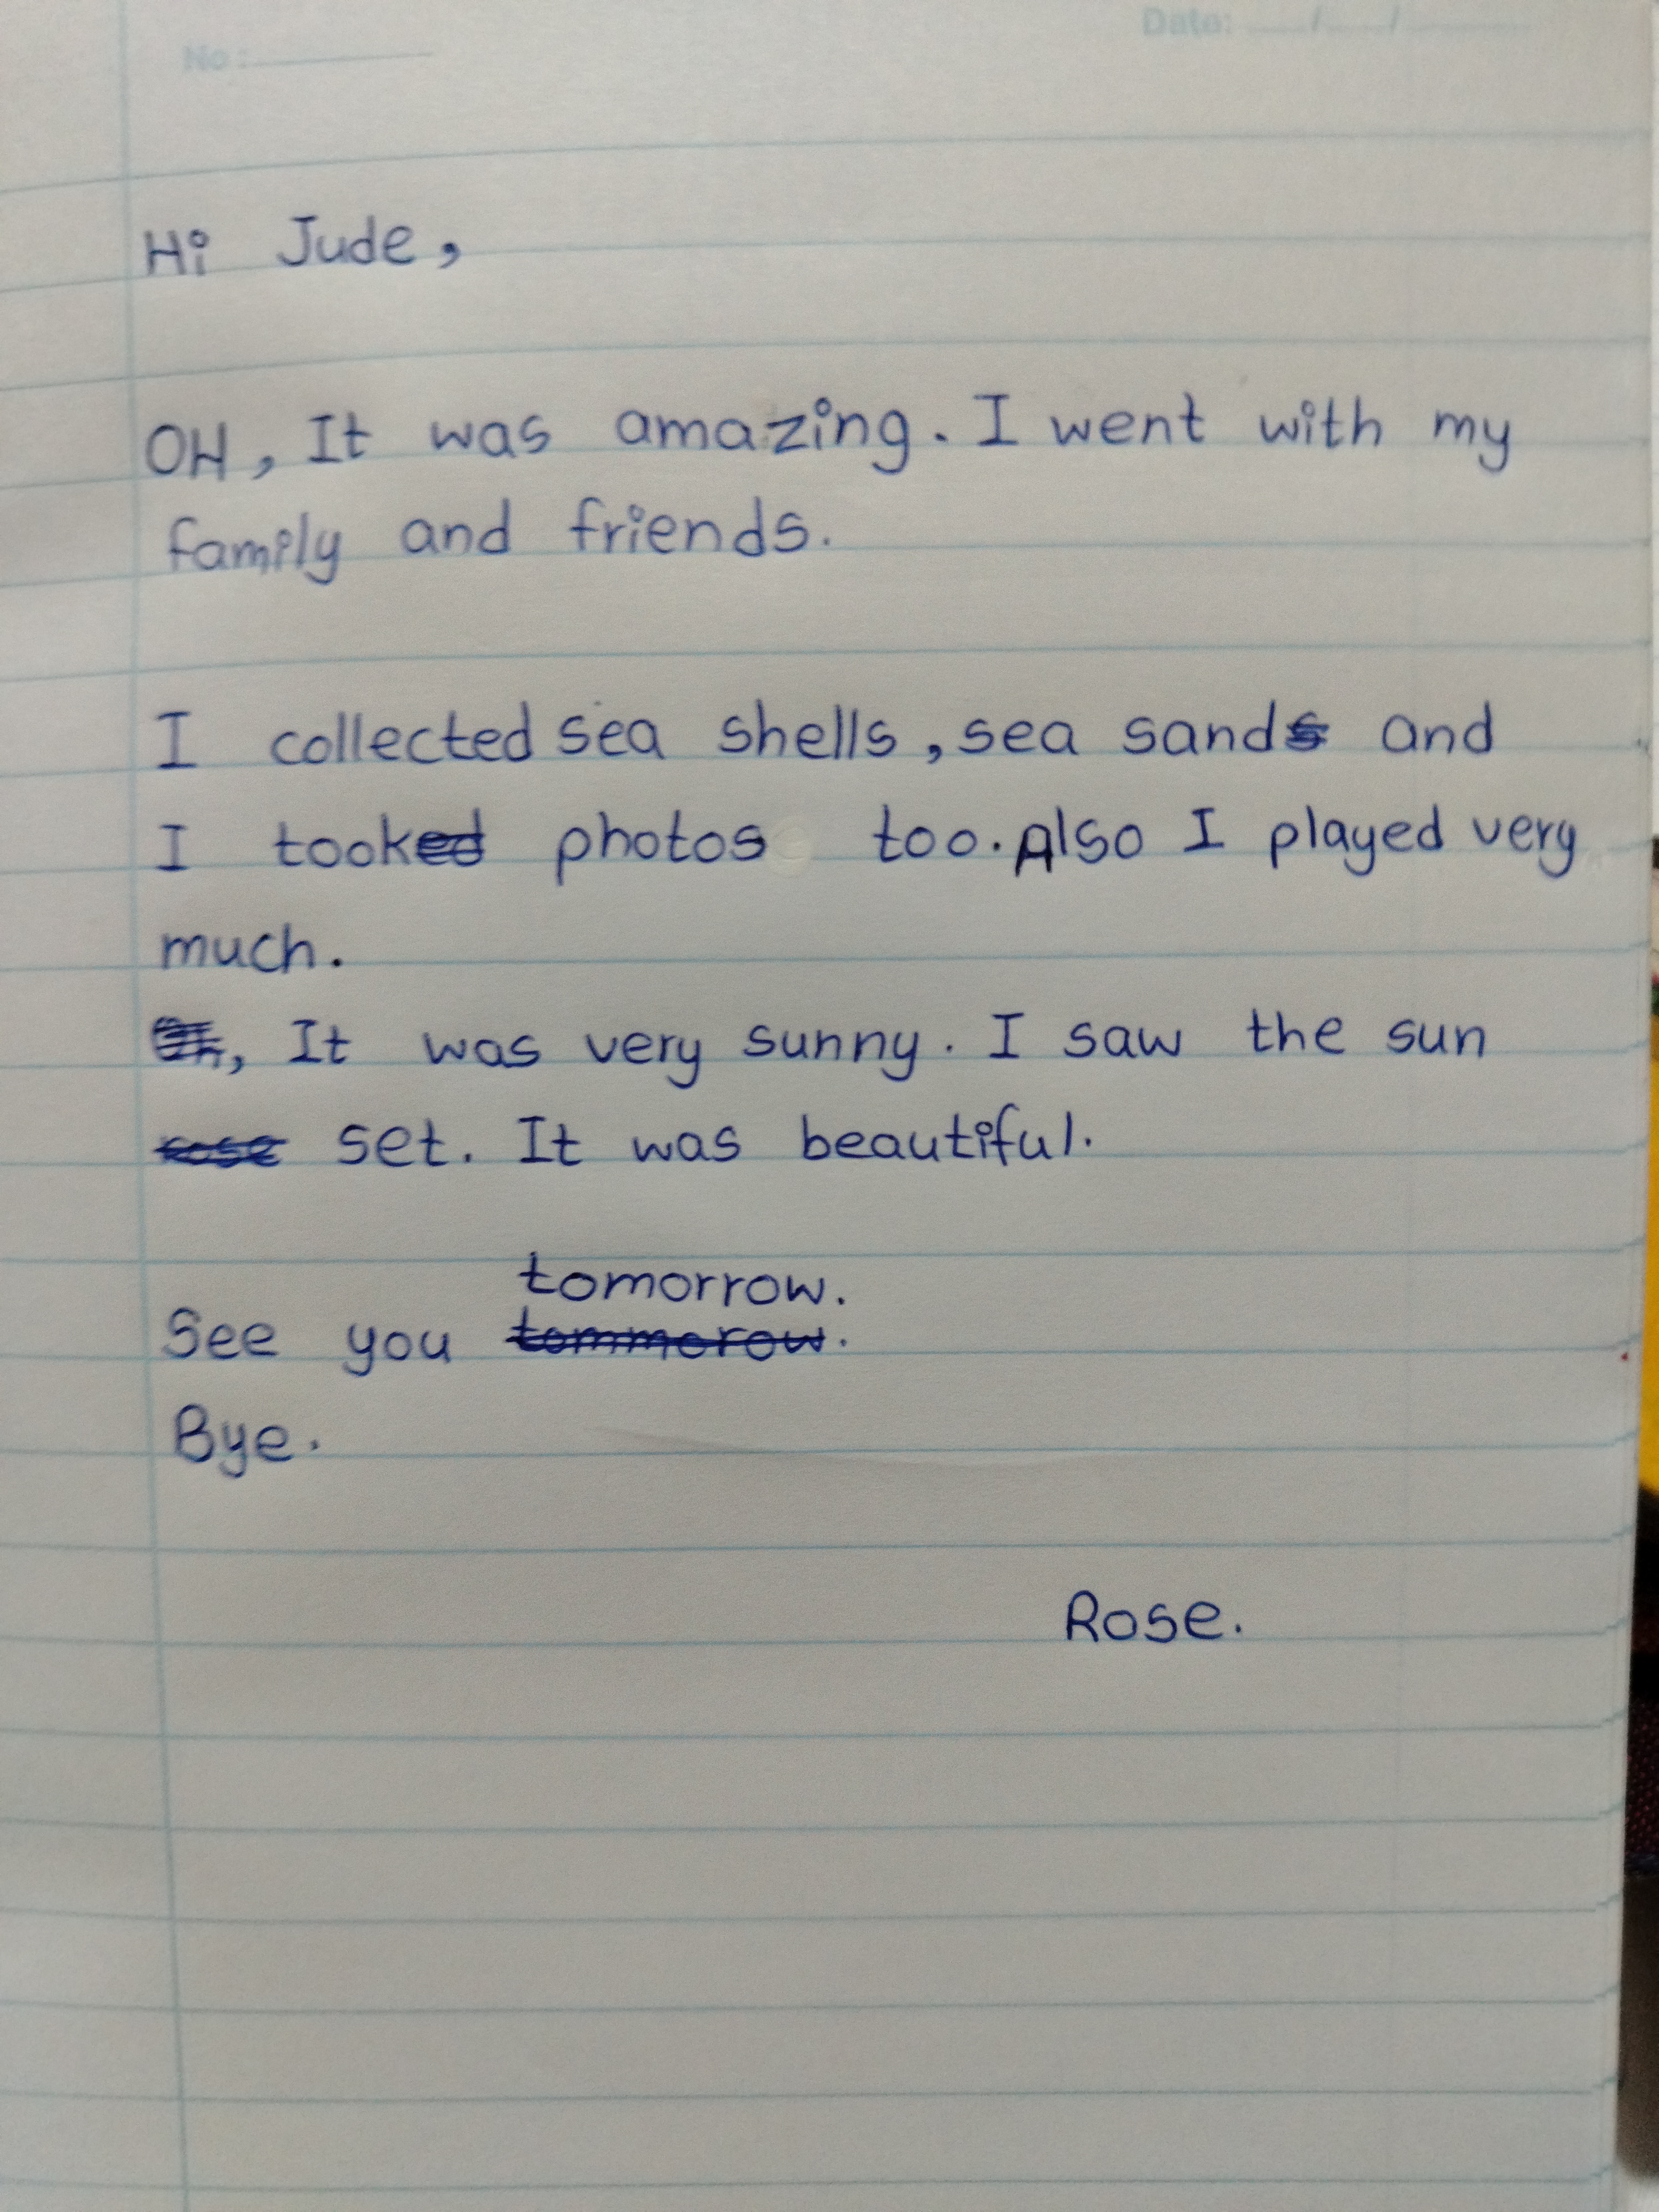 No :
Date: / /
Hi Jude,
OH, It was amazing. I went with my
family and friends.
I collected sea shells, sea sand and
I took photos too. Also I played very
much.
, It was very sunny. I saw the sun
set. It was beautiful.
tomorrow.
See you tommorow.
Bye.
Rose.